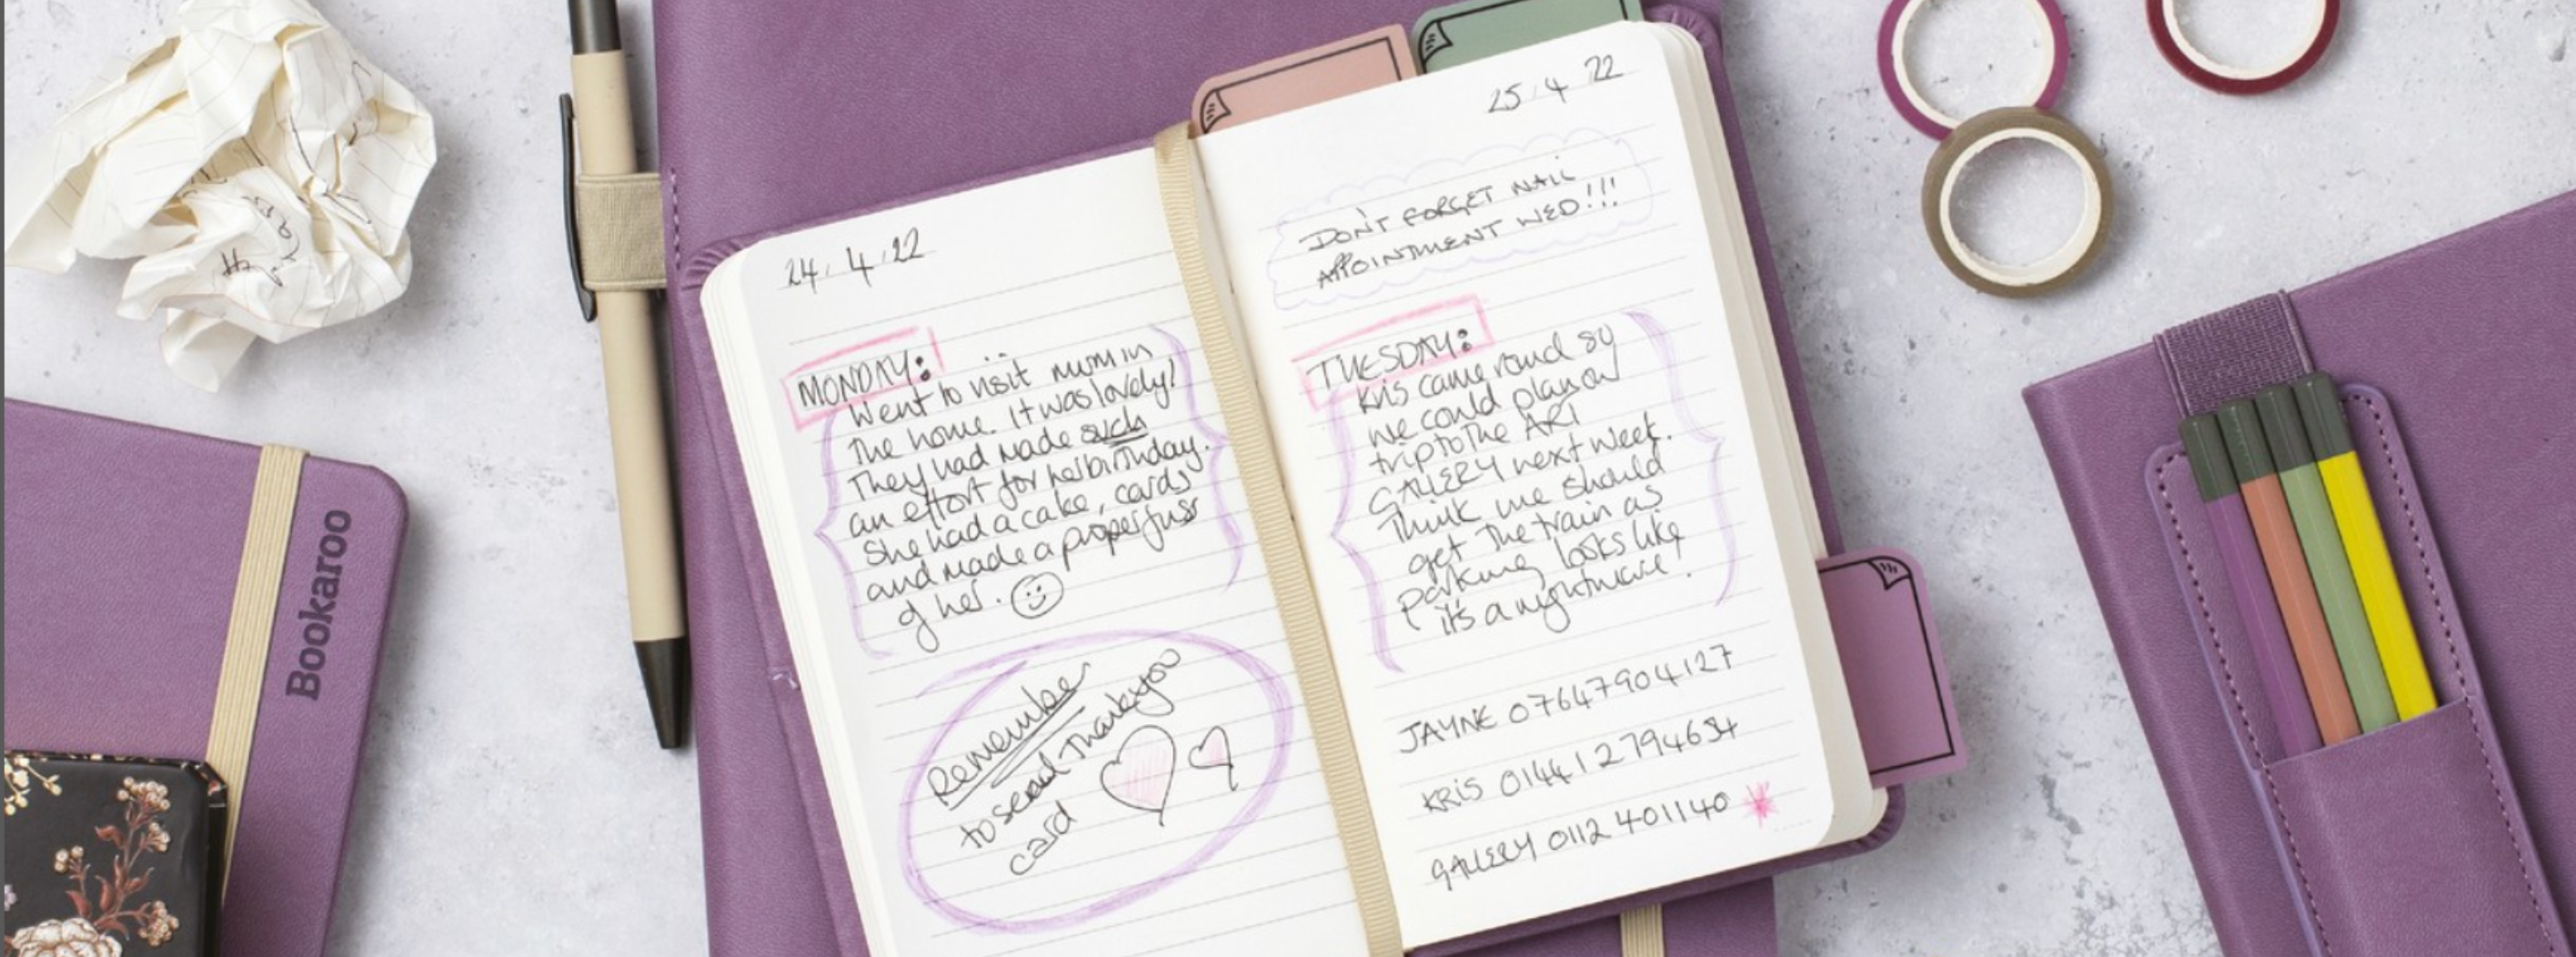 24.4.22
MONDAY:
Went to visit mum in
the home. It was lovely!
They had made such
an effort for her birthday.
She had a cake, cards
and made a proper fuss
of her.
Remember
to send Thankyou
card
25.4.22
DON'T FORGET NAIL
APPOINTMENT WED!!!
TUESDAY:
Kris came round so
we could plan our
trip to the ART
GALLERY next week.
Think we should
get the train as
parking looks like
it's a nightmare!
JAYNE 07647904127
KRIS 01441 2794634
GALLERY 0112 401140
Bookaroo